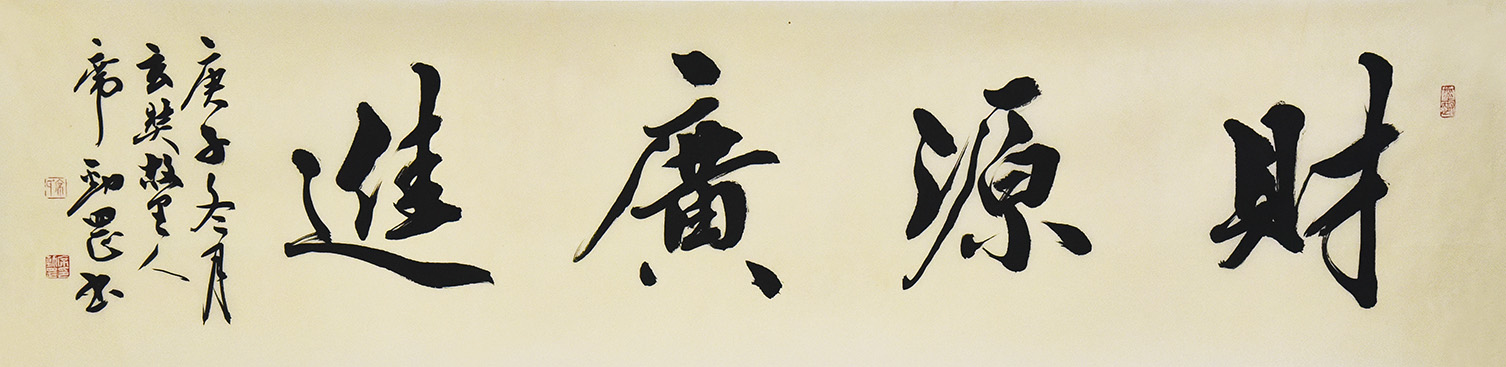 財源廣進
庚子冬月
玄奘故里人
席勁罡書